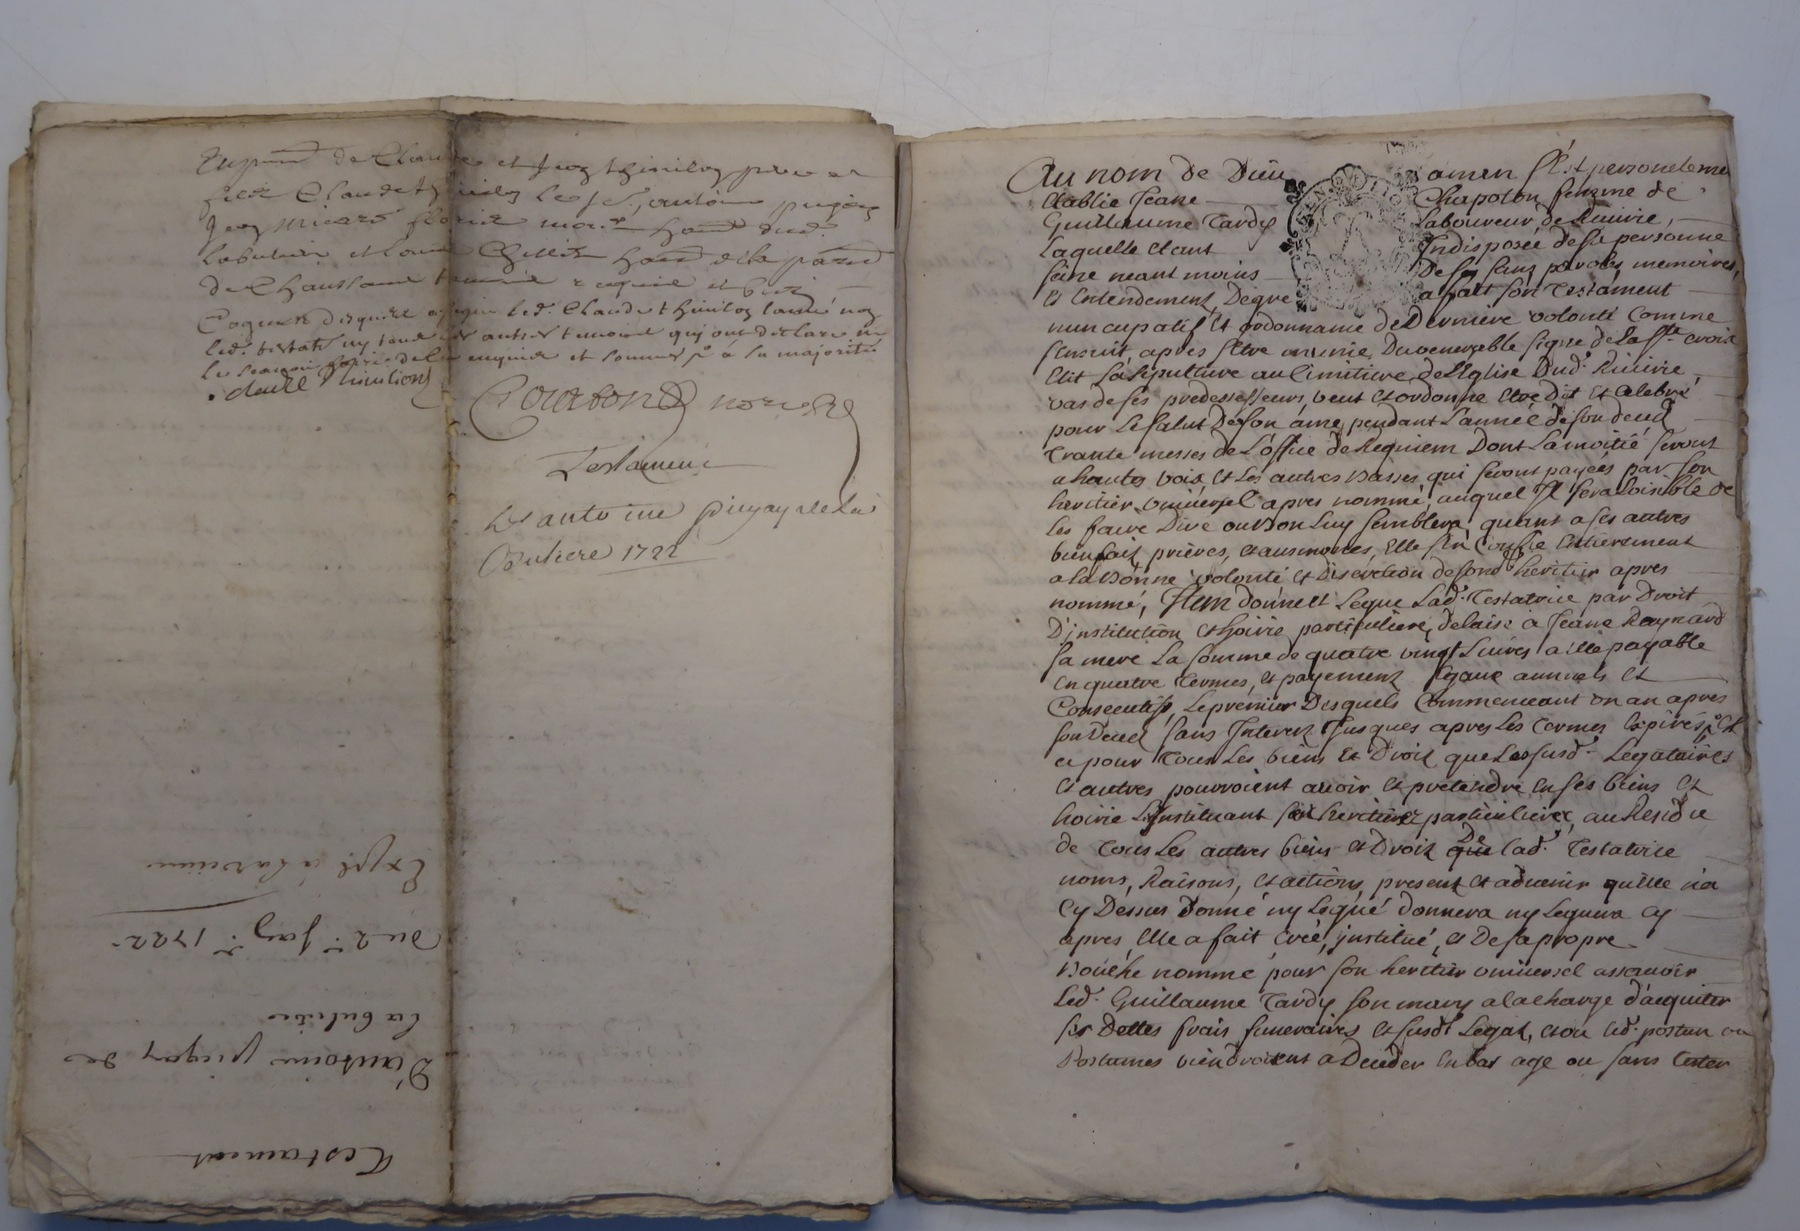 de Claude et Jean thinilon pere et
filz Claude le jeune, antoine pugay
Jean micard
Labulieu et Louis hab. de la paroisse
de Chausland requis et
enquis led. Claude thinilon
led. testateur ny autres temoins qui ont declaré ne
le scavoir de ce enquis et sommes a la majorité
. claude thinilion
Gourbond no.re
Testament
de antoine pugay de la
Bulliere 1722
Expe a
du 2e janr. 1722
D'antoine pugay de
la buliere
Testament
Au nom de Dieu amen fut personelemt
Etablie Jeane Chapoton femme de
Guillaume Tardy Laboureur de Rivirie,
Laquelle etant Indisposée de sa personne
saine neant moins De ses sens paroles memoires,
et Entendement, De gre a fait son Testament
nuncupatif et ordonnance de Derniere volonté Comme
sensuit, apres setre munie Du venerable signe de La Ste. croix
Elit sa sepulture au Cimitiere de L'Eglise Dud. Rivirie
vas de ses predessesseurs, veut et ordonne etre Dit et Celebré
pour Le salut De son ame, pendant L'année de son deces
trante messes de L'office de Requiem Dont La moitié seront
a hautes voix et Les autres Basses, qui seront payées par son
heritier universel apres nommé auquel Il sera Loisible de
les faire Dire ou Bon Luy semblera, quant a ses autres
bienfait, prières, et ausmones, Elle s'en Confie Entierement
a la Bonne volonté et Discretion de sond. heritier apres
nommé, Item donne et Legue Lad. Testatrice par Droit
D'institution et hoirie particuliere, delaise à Jeane Raynard
sa mere La somme de quatre vingt Livres a Elle payable
En quatre Termes, et payement Egaux annuels et
Consecutifs, Le premier Desquels Commencant un an apres
son Deces sans Interest Jusques apres Les Termes Expirés, et
ce pour Tous Les biens et Droit que Les susd. Legataires
et autres pourroient avoir et pretendre en ses biens et
hoirie L'Instituant son heritiere particuliere, au Residu
de Tous Les autres biens et Droit De Lad. Testatrice
noms, Raisons, et actions, present et advenir quelle n'a
Cy Dessus Donné ny Legué donnera ny Leguera Cy
apres, Elle a fait Créé, institué, et De sa propre
Bouche nommé pour son heritier universel assavoir
Led. Guillaume Tardy son mary a la charge d'acquiter
ses Dettes frais funeraires et susdt Legat, et ou led. postum ou
Postumes viendroient a Deceder en bas age ou sans tester